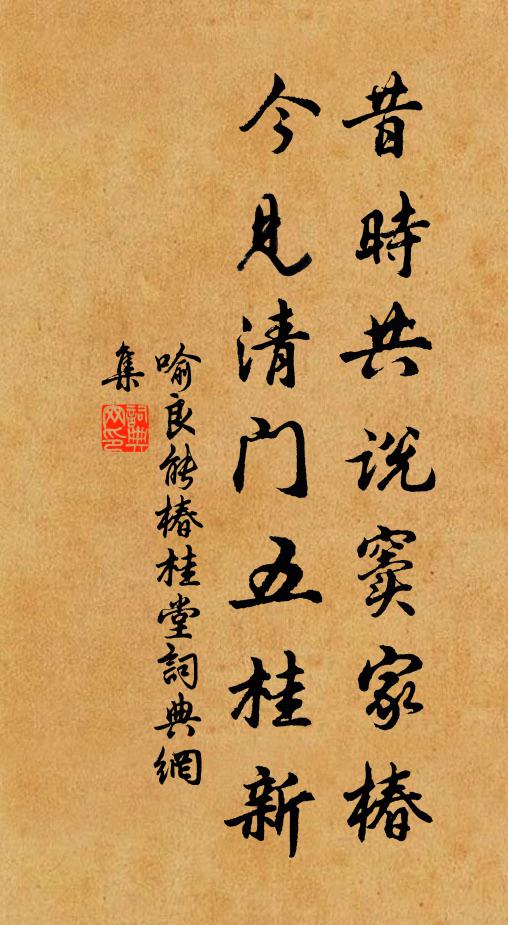 昔時共説竇家椿
今見清门五桂新
喻良能椿桂堂詞典網
集
詞典網印